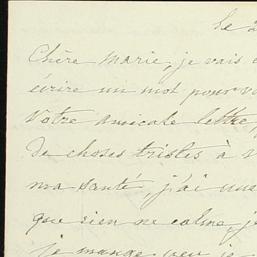 le 2
Chère Marie, je vais
écrire un mot pour v
Votre amicale lettre,
de choses tristes à v
ma santé, j'ai une
que rien ne calme, je
je mange peu je